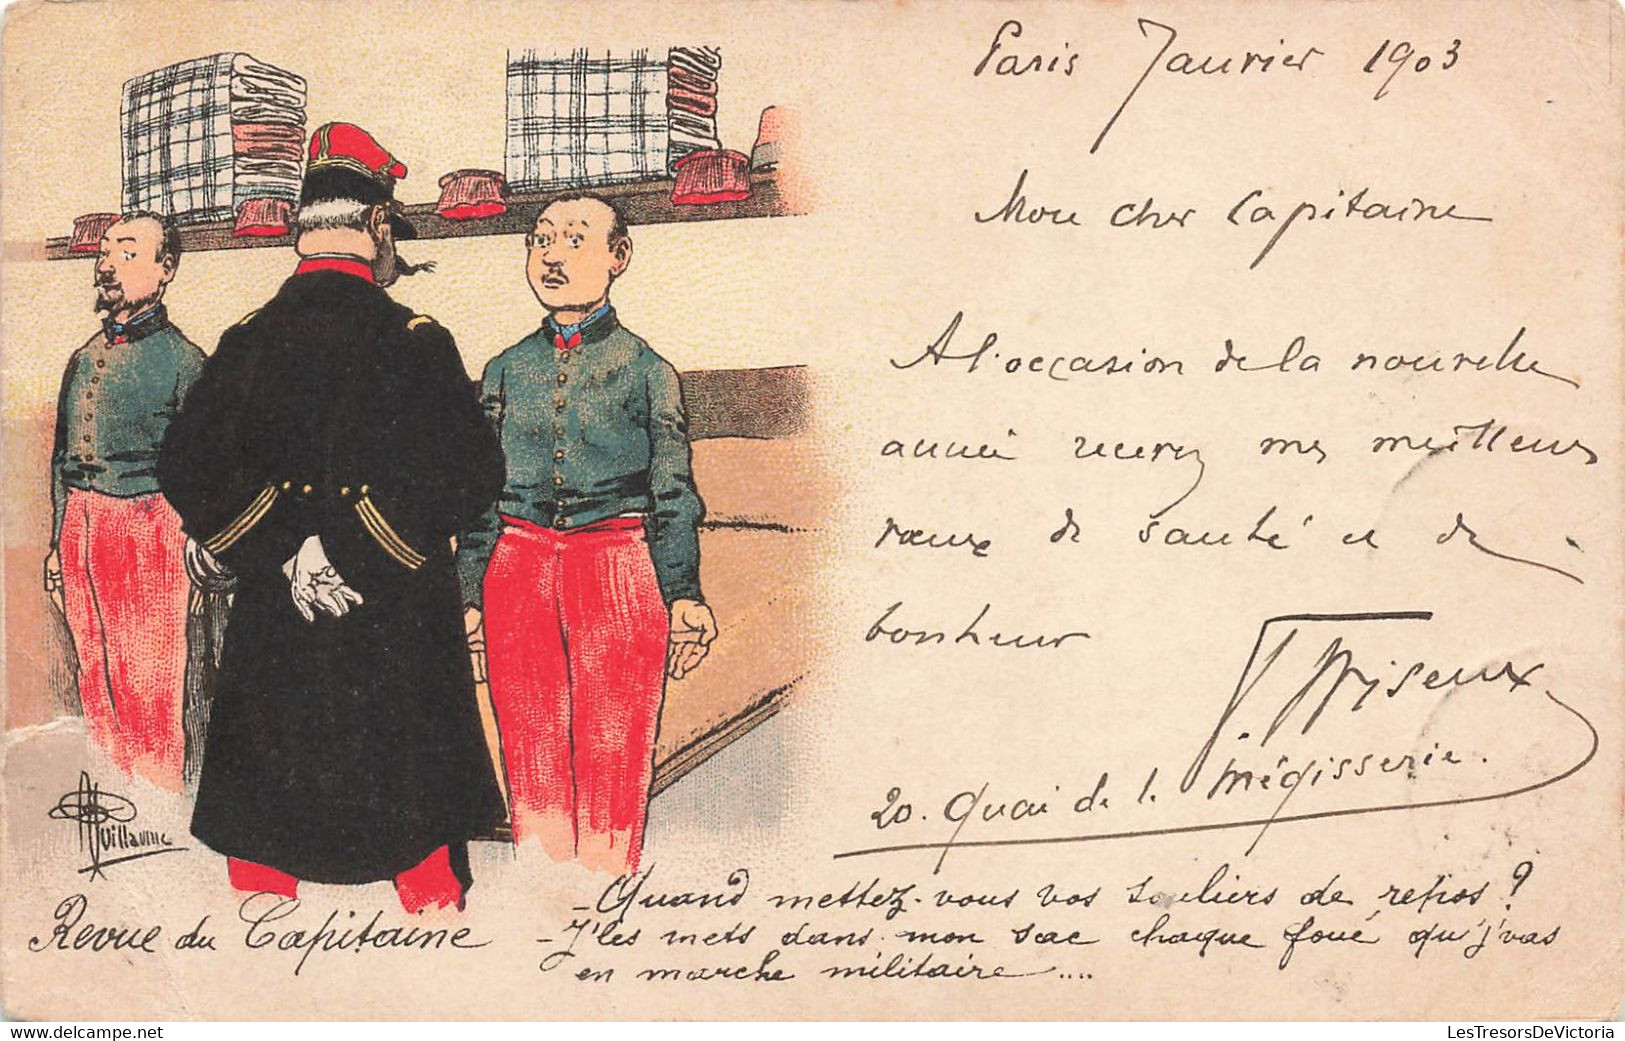 Paris Janvier 1903
Mon cher Capitaine
A l'occasion de la nouvelle
année recevez mes meilleurs
vœux de santé et de
bonheur
20. Quai de la Mégisserie.
Guillaume
Revue du Capitaine
- Quand mettez-vous vos souliers de repos ?
- J'les mets dans mon sac chaque foué qu'j'vas
en marche militaire ....
LesTresorsDeVictoria